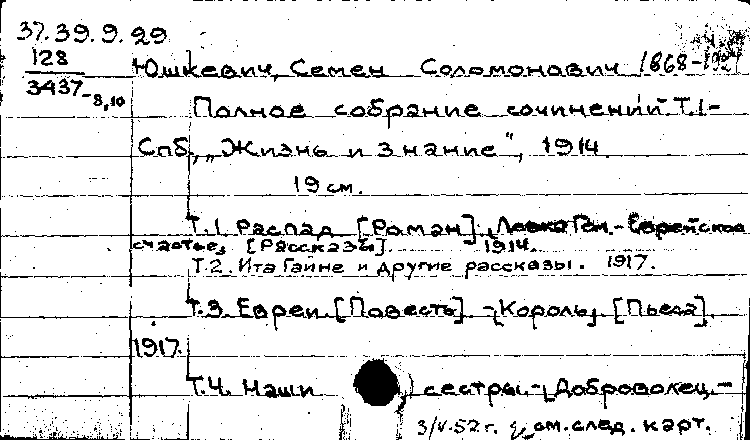 37.39.9.29
128
3437-8,10
Юшкевич, Семен Соломонович 1868-1927
Полное собрание сочинений. Т.1-
Спб., „Жизнь и знание“, 1914.
19 см.
Т.1. Распад [Роман]. Левка Гем.- Еврейское
счастье, [Рассказы]. 1914.
Т.2. Ита Гайне и другие рассказы. 1917.
Т.3. Евреи. [Повесть]. -[Король]. [Пьеса].
1917.
Т.4. Наши сестры.-[Доброволец.-
3/V-52г. см.след. карт.